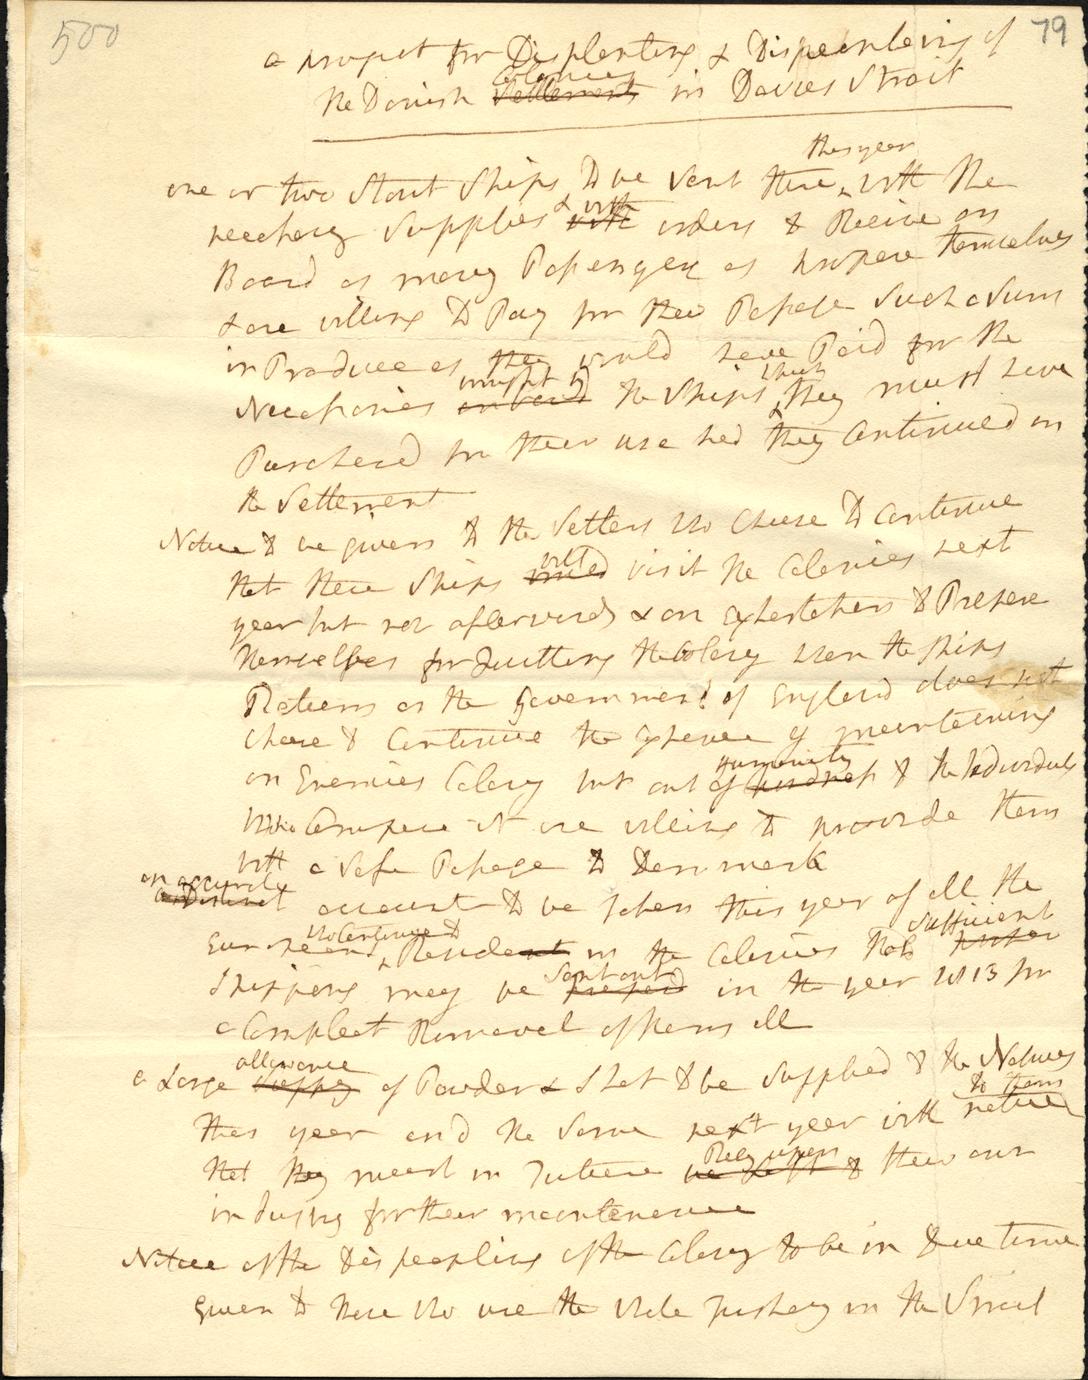 500
79
a project for Displanting & Dispeopleing of
Colonies
the Danish Settlements in Davies Strait
this year
one or two Stout Ships to be Sent there, with the
& with
necessary Supplies with orders to Receive on
Board as many Passengers as prepare themselves
& are willing to Pay for their Passage Such a Sum
in Produce as they would have Paid for the
brought by which
Necessaries on board the Ships they must have
Purchased for their use had they Continued in
the Settlement
Notice to be given to the Settlers who Chuse to Continue
will
that these Ships visit the Colonies next
year but not afterwards & an Exhortation to Prepare
themselves for Quitting the Colony when the Ships
Return as the Government of England does not
Chuse to Continue the Expence of maintaining
humanity
an Enemies Colony but out of kindness to the Individuals
who Compose it are willing to provide them
with a Safe Passage to Denmark
an accurate
a Distinct account to be taken this year of all the
who Continue to Sufficient
Europeans Resident in the Colonies that proper
Sent out
Shipping may be prepard in the year 1813 for
a Compleat Removal of them all
allowance
a Large Supply of Powder & Shot to be Supplied to the Natives
to them
this year and the Same next year with notice
Rely upon
that they must in Future be Left to their own
industry for their maintenance
Notice of the Dispeopling of the Colony to be in Due time
given to those who use the whale Fishery in the Strait